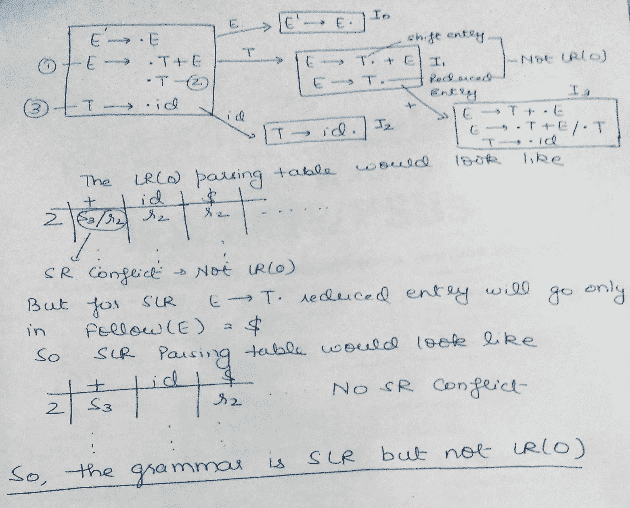 E' → . E
① E → . T + E
. T ②
③ T → . id
E
E' → E . I0
T
E → T . + E I1
E → T .
shift entry
Reduced entry
Not LR(0)
id
T → id . I2
+
I3
E → T + . E
E → . T + E / . T
T → . id
The LR(0) parsing table would look like
+ id $
2 S3/r2 r2 r2 ......
SR Conflict → Not LR(0)
But for SLR E → T. reduced entry will go only
in Follow(E) = $
So SLR Parsing table would look like
+ id $
2 S3 r2
No SR Conflict
So, the grammar is SLR but not LR(0)